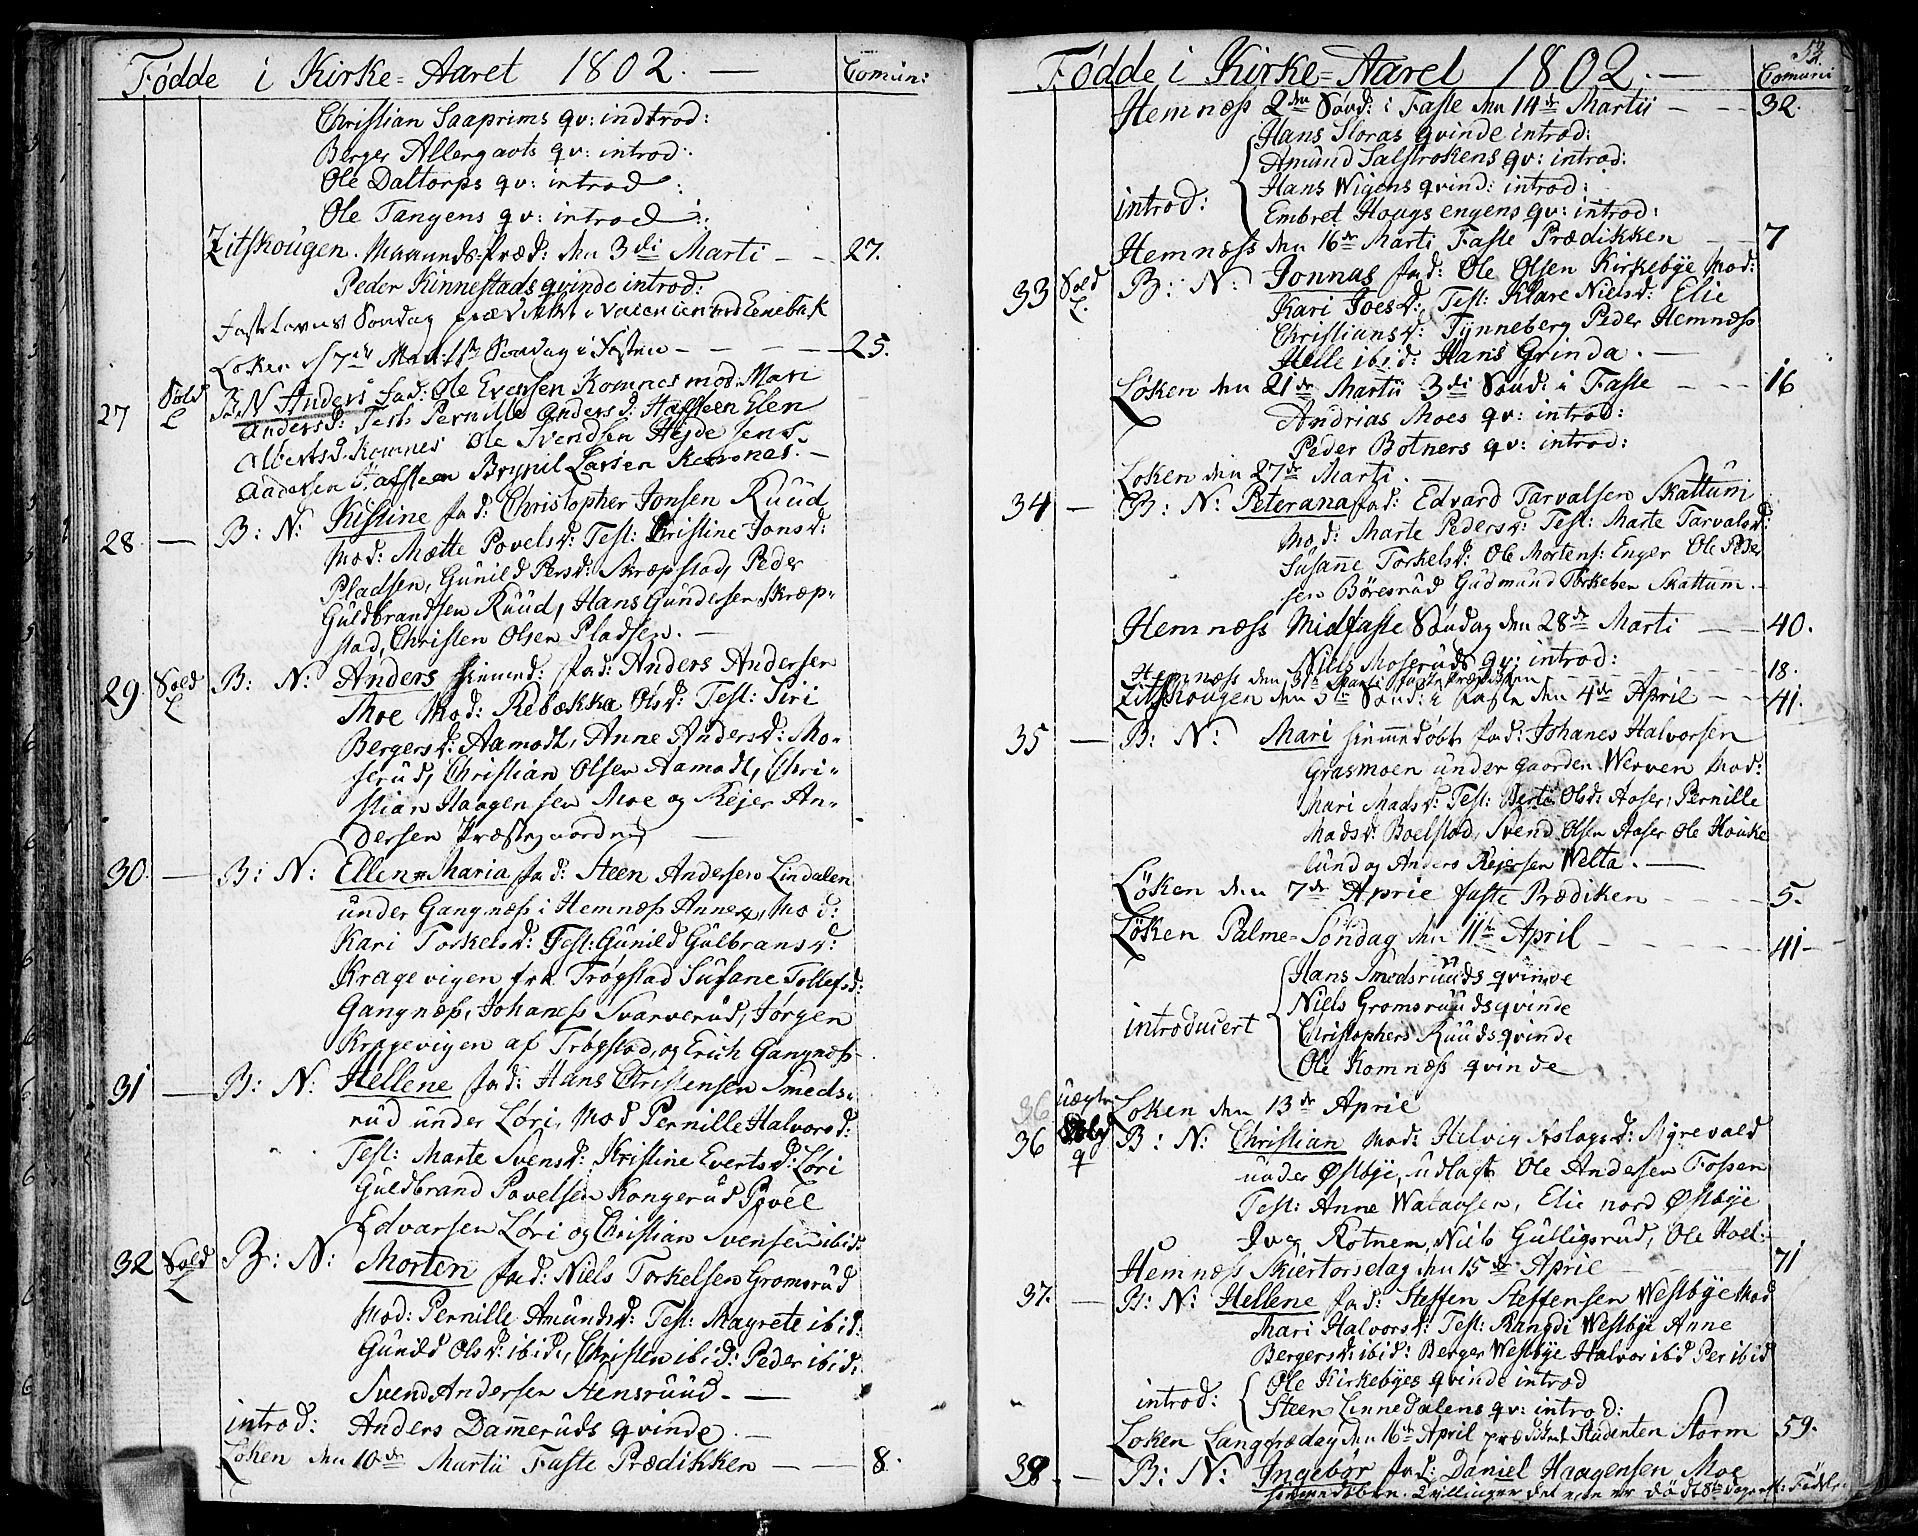 Fødde i Kirke-Aaret 1802. — Comun:
Christian Saaprims qv: indtrod:
Berger Allergaots qv: introd:
Ole Daltorps qv: introd:
Ole Tangens qv: introd:
Zitskougen. Maaneds-præd: den 3di Marti - - 27.
Peder Kinnestads qvinde introd:
Fastelavns Søndag
Løken d 7de Mart: 1ste Søndag i Fasten - - - - 25.
27 Sold L B: N Anders fad: Ole Evensen Komnes mod: Mari
Andersd: Test: Pernille Andersd: Hafsteen Elen
Albertsd: Komnes Ole Svendsen Hejde Jens
Andersen Hafsteen Brynil Larsen Komnes. —
28. — B: N: Kistine fad: Christopher Jonsen Ruud
Mod: Mætte Povelsd: Test: Christine Jonsd:
Pladsen, Gunild Persd: Skræpstad, Peder
Guldbrandsen Ruud, Hans Gundersen Skræp-
stad, Christen Olsen Pladsen. —
29. Sold L B: N: Anders hiemd: fad: Anders Andersen
Moe Mod: Rebækka Olsd: Test: Siri
Bergersd: Aamodt, Anne Andersd: Mo-
serud, Christian Olsen Aamodt, Chri-
stian Haagensen Moe og Rejer An-
dersen Præstegaarden —
30. — B: N: Ellen Maria fad: Steen Andersen Lindalen
under Gangnæss i Hemnæss Annex, Mod:
Kari Torkelsd: Test: Gunild Gulbransd:
Kragevigen fra Trøgstad Susane Tollefsd:
Gangnæss, Johanes Svarverud, Jørgen
Kragevigen af Trøgstad, og Erich Gangnæss-
31 — B: N: Hellene fad: Hans Christensen Smeds-
rud under Løri, Mod Pernille Halvorsd:
Test: Marte Svensd: Kristine Evertsd: Løri
Guldbrand Povelsen Kongerud Povel
Edvarsen Løri og Christian Svensen ibid:
32 Sold L B: N: Morten fad: Niels Torkelsen Gromsrud
Mod: Pernille Amundsd: Test: Magrete ibid:
Gunild Olsd: ibid:, Christen ibid: Peder ibid:
Svend Andersen Stensruud. —
introd: Anders Dammeruds qvinde. —
Løken den 10de Martii Faste Prædikken — — 8.
Fødde i Kirke-Aaret 1802. — Comuni
Hemnæss 2den Sønd: i Faste den 14de Martii - - 32.
Hans Sloras qvinde introd:
Amund Salstrokens qv: introd:
Hans Wigens qvind: introd:
introd: Embret Hougsengens qv: introd:
Hemnæss den 16de Marti Faste Prædikken - - 7
33 Sold L. B: N: Jonnas fad: Ole Olsen Kirkebye Mod:
Kari Joesd:, Test: Klare Nielsd: Elie
Christiansd: Tynneberg Peder Hemnæss
Helle ibid: Hans Grinda. —
Løken den 21de Martii 3di Sønd: i Faste - - - 16
Andrias Moes qv: introd:
Peder Botners qv: introd:
Løken den 27de Marti. —
34 — B: N: Peterana fad: Edvard Tarvalsen Skattum
Mod: Marte Pedersd: Test: Marte Tarvalsd:
Susanne Torkelsd: Ole Mortens: Enger Ole Peder
sen Børesrud Gudmund Torkelsen Skattum. —
Hemnæss Midfaste Søndag den 28de Marti - - 40.
Niels Moseruds qv: introd:
Hemnæss den 31te Marti faste Prædikken - - - 18.
Zitskougen den 5te Sønd: i faste den 4de April - - 41.
35 — B: N: Mari hiemmedøbt fad: Johanes Halvorsen
Grasmoen under gaarden Werven Mod:
Mari Madsd: Test: Berte Olsd: Aaser, Pernille
Madsd: Boelstad, Svend Olsen Aaser Ole Houke
lund og Anders Rejersen Welta. —
Løken den 7de Aprie faste Prædiken - - - - 5.
Løken Palme-Søndag den 11te April - - - - - 41 -
Hans Smedsruuds qvinde
Niels Gromsruuds qvinde
introducert Christophers Ruuds qvinde
Ole Komnæss qvinde
36 uægte Løken den 13de April
36 B: N: Christian Mod: Helvig Aslagsd: Myrevold
under Østbye, udlagt Ole Andersen Fossen
Test: Anne Watausen, Elie nord Østbye
Iver Rotnem, Niels Gulligsrud, Ole Hoel: -
Hemnæss Skiertorsdag den 15de April - - - 71
37. — B: N: Hellene fad: Steffen Steffensen Westbye Mod
Mari Halvorsd: Test: Rangdi Westbye Anne
Bergersd: ibid: Berger Westbye Halvor ibid Per ibid
Ole Kirkebyes qvinde introd
introd: Steen Linnedalens qv: introd:
Løken Langfredag den 16de April prædiket Studenten Storm 59.
38. — B: N: Ingebør fad: Daniel Haagensen Moe
hiemmedøben. Tvillinger det een er død 8te dag eft: Fødsl: